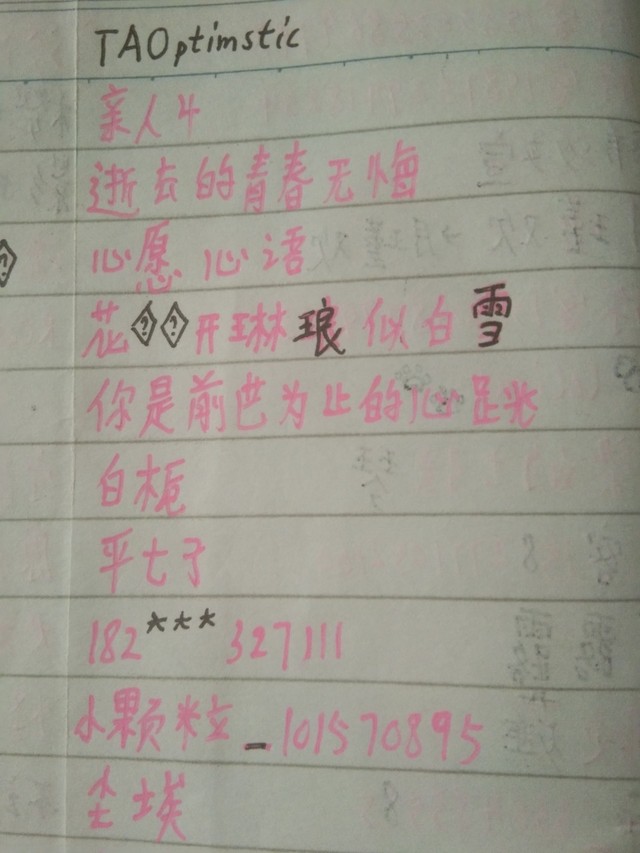 TAOptimstic
亲人4
逝去的青春无悔
心愿心语
花��开琳琅似白雪
你是前世为止的心跳
白栀
平七子
182***327111
小颗粒_101570895
尘埃